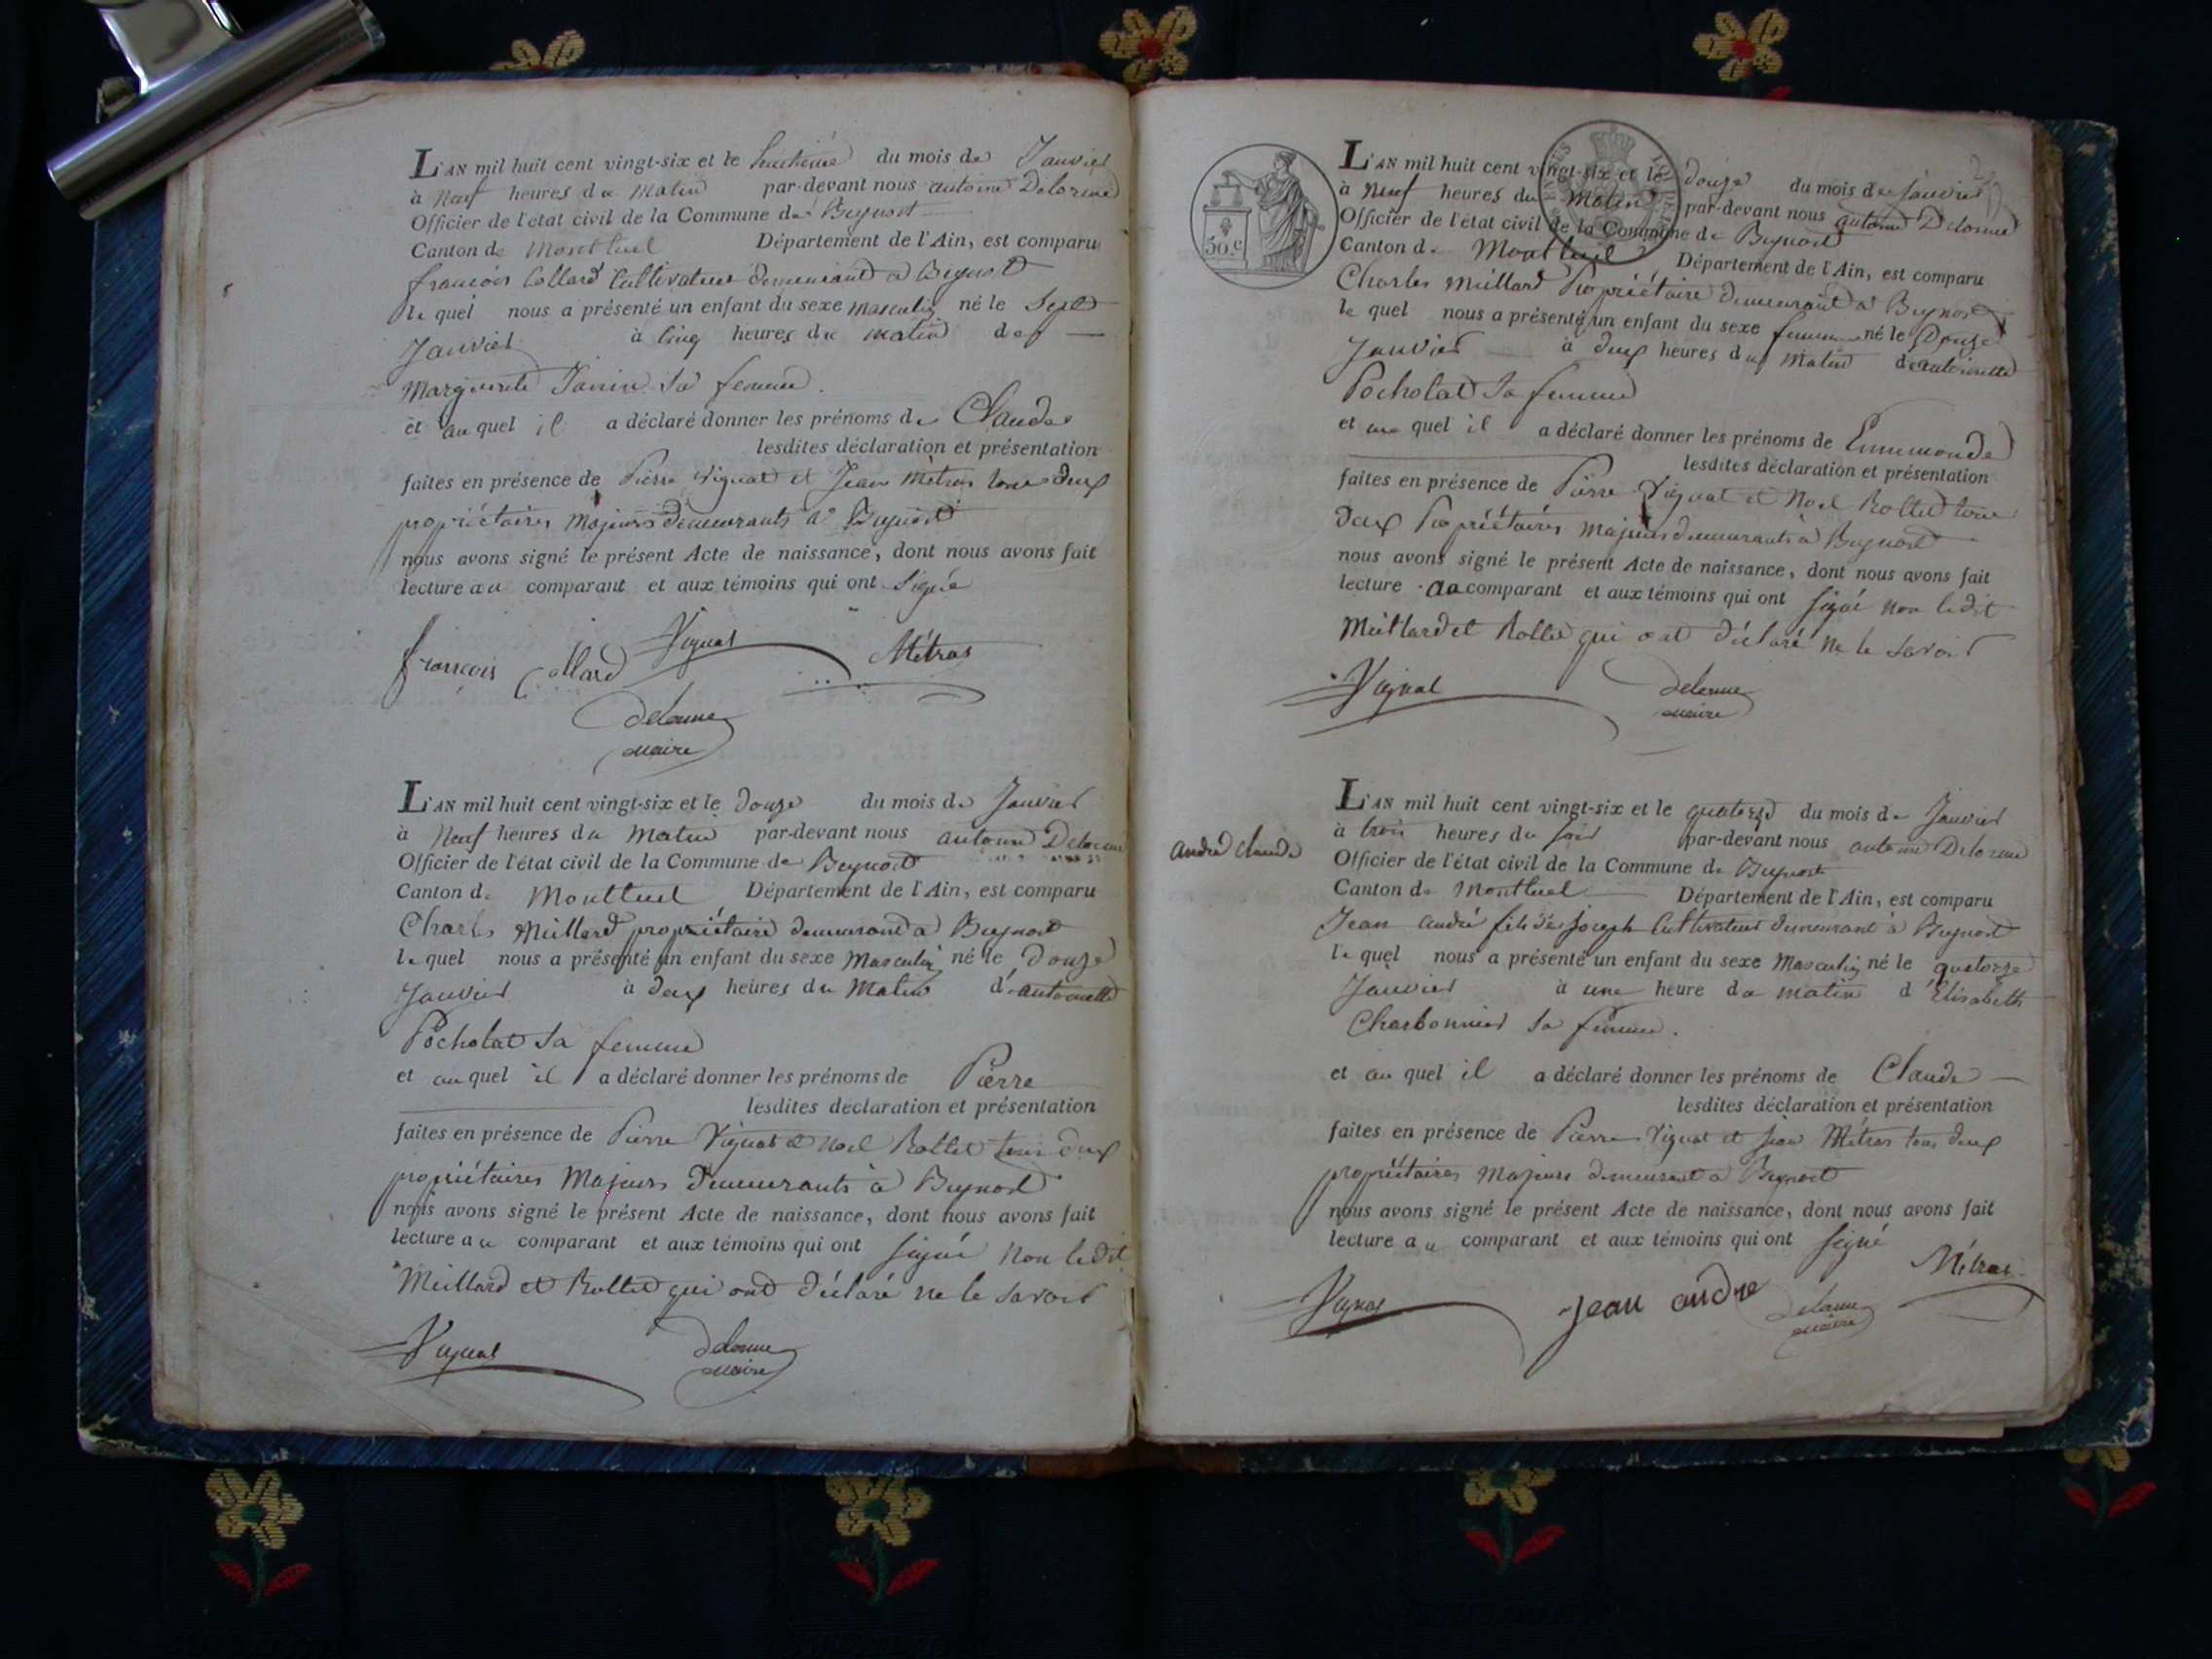 L'AN mil huit cent vingt-six et le huitième du mois de Janvier
à Neuf heures du Matin par-devant nous antoine Delorme
Officier de l'état civil de la Commune de Beynost
Canton de Montluel Département de l'Ain, est comparu
françois Collard Cultivateur demeurant à Beynost
le quel nous a présenté un enfant du sexe masculin né le Sept
Janvier à Cinq heures du matin de
Marguerite Janin sa femme.
et au quel il a déclaré donner les prénoms de Claude
lesdites déclaration et présentation
faites en présence de Pierre Vignat et Jean Métras tous deux
propriétaires Majeurs demeurants à Beynost
nous avons signé le présent Acte de naissance, dont nous avons fait
lecture au comparant et aux témoins qui ont Signé
françois Collard Vignat Métras
delorme
maire
L'AN mil huit cent vingt-six et le douze du mois de Janvier
à Neuf heures du Matin par-devant nous antoine Delorme
Officier de l'état civil de la Commune de Beynost
Canton de Montluel Département de l'Ain, est comparu
Charles Meillard propriétaire demeurant à Beynost
le quel nous a présenté un enfant du sexe Masculin né le douze
Janvier à deux heures du Matin d'antoinette
Pocholat sa femme
et au quel il a déclaré donner les prénoms de Pierre
lesdites déclaration et présentation
faites en présence de Pierre Vignat et Noel Rollet tous deux
propriétaires Majeurs demeurants à Beynost
nous avons signé le présent Acte de naissance, dont nous avons fait
lecture au comparant et aux témoins qui ont signé non ledit
Meillard et Rollet qui ont déclaré ne le savoir
Vignat delorme
maire
50.c
L'AN mil huit cent vingt-six et le douze du mois de Janvier
à Neuf heures du Matin par-devant nous antoine Delorme
Officier de l'état civil de la Commune de Beynost
Canton de Montluel Département de l'Ain, est comparu
Charles Meillard Propriétaire demeurant à Beynost
le quel nous a présenté un enfant du sexe feminin né le Douze
Janvier à deux heures du Matin d'antoinette
Pocholat sa femme
et au quel il a déclaré donner les prénoms de Ennemonde
lesdites déclaration et présentation
faites en présence de Pierre Vignat et Noel Rollet tous
deux Propriétaires majeurs demeurants à Beynost
nous avons signé le présent Acte de naissance, dont nous avons fait
lecture au comparant et aux témoins qui ont signé non ledit
Meillard et Rollet qui ont déclaré ne le savoir
Vignat delorme
maire
andré claude
L'AN mil huit cent vingt-six et le quatorze du mois de Janvier
à trois heures du soir par-devant nous antoine Delorme
Officier de l'état civil de la Commune de Beynost
Canton de Montluel Département de l'Ain, est comparu
Jean andré fils de joseph Cultivateur demeurant à Beynost
le quel nous a présenté un enfant du sexe Masculin né le quatorze
Janvier à une heure du matin d'Elisabeth
Charbonnier sa femme.
et au quel il a déclaré donner les prénoms de Claude
lesdites déclaration et présentation
faites en présence de Pierre Vignat et Jean Métras tous deux
propriétaires majeurs demeurant à Beynost
nous avons signé le présent Acte de naissance, dont nous avons fait
lecture au comparant et aux témoins qui ont signé
Vignat jean andre delorme Métras
maire